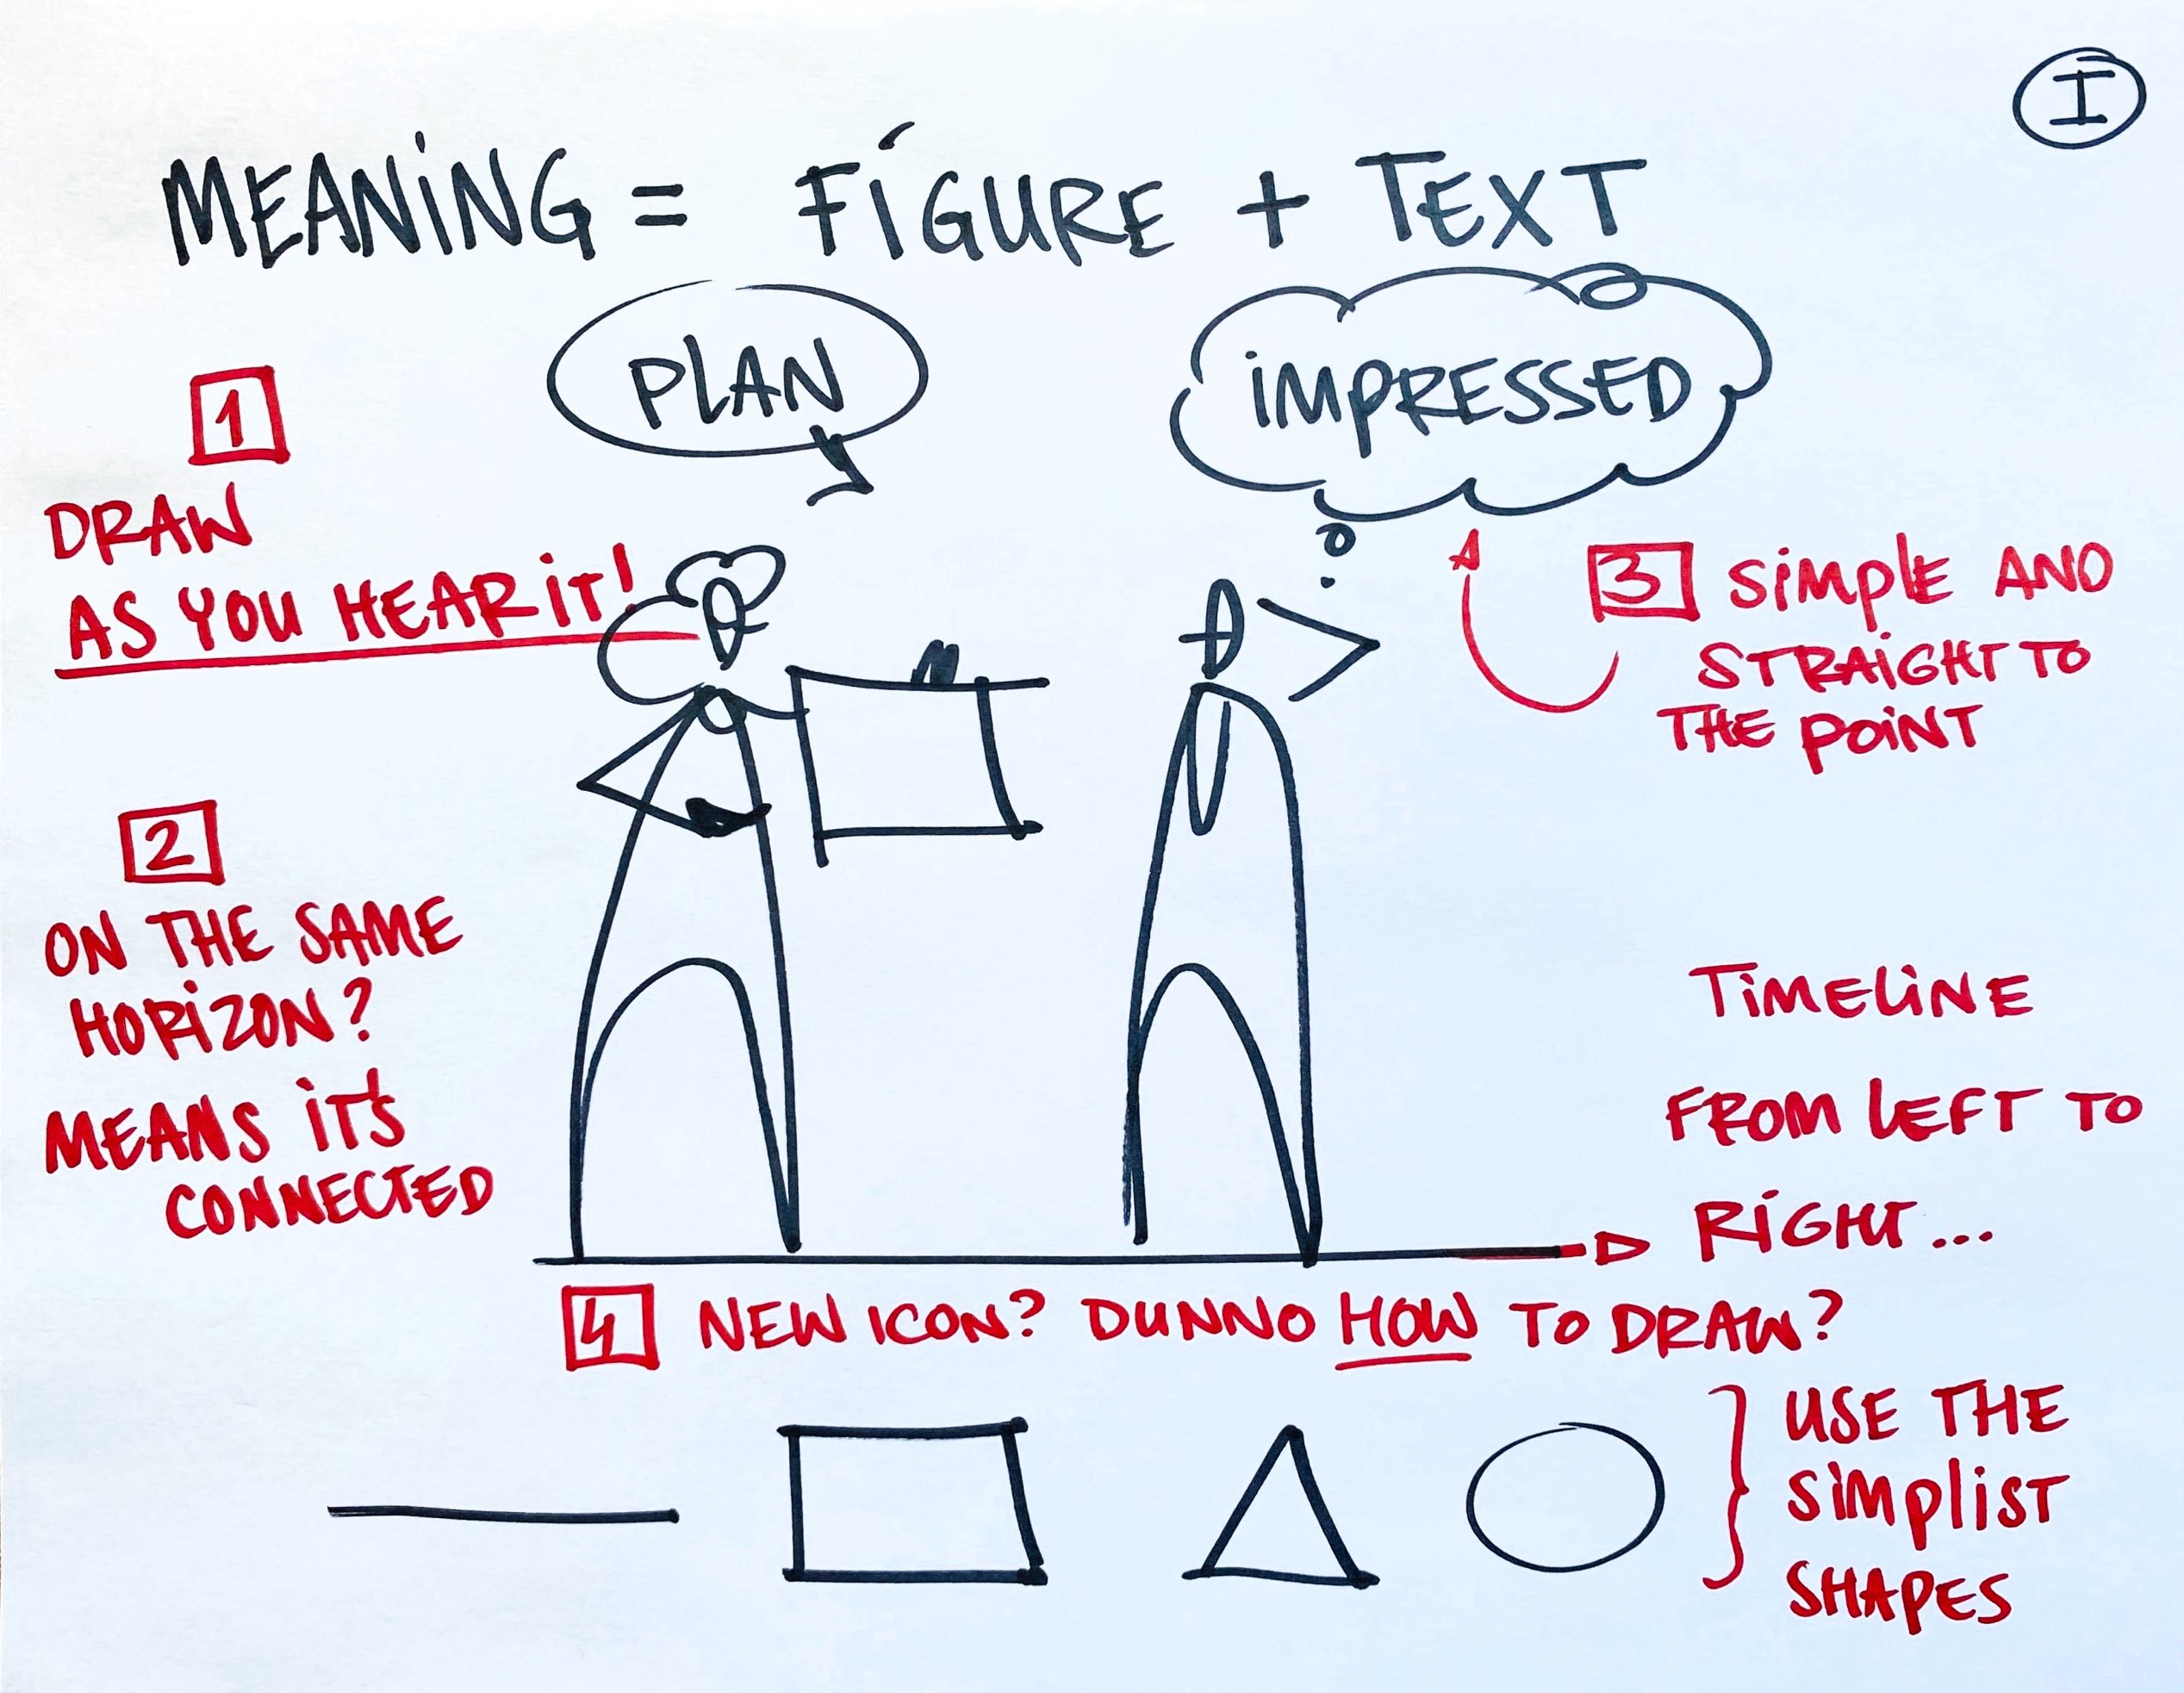 I
MEANiNG = FíGURE + TEXT
PLAN
iMPRESSED
1
DRAW
AS YOU HEAR iT!
2
ON THE SAME
HORiZON?
MEANS iT'S
CONNECTED
3 SiMPlE AND
STRAiGHT TO
THE POiNT
TiMELiNE
FROM LEFT TO
RiGHT...
4 NEW ICON? DUNNO HOW TO DRAW?
USE THE
SiMPliST
SHAPES